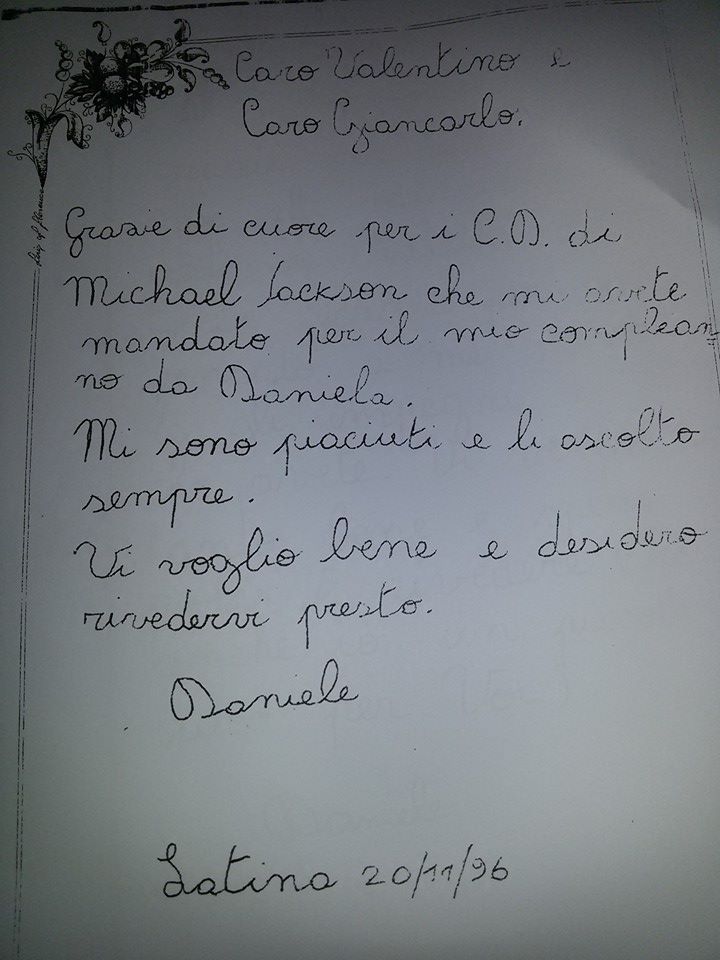 Caro Valentino e
Caro Giancarlo.
Grazie di cuore per i C.D. di
Michael Jackson che mi avete
mandato per il mio complean=
no da Daniela.
Mi sono piaciuti e li ascolto
sempre.
Vi voglio bene e desidero
rivedervi presto.
Daniele
Latina 20/11/96